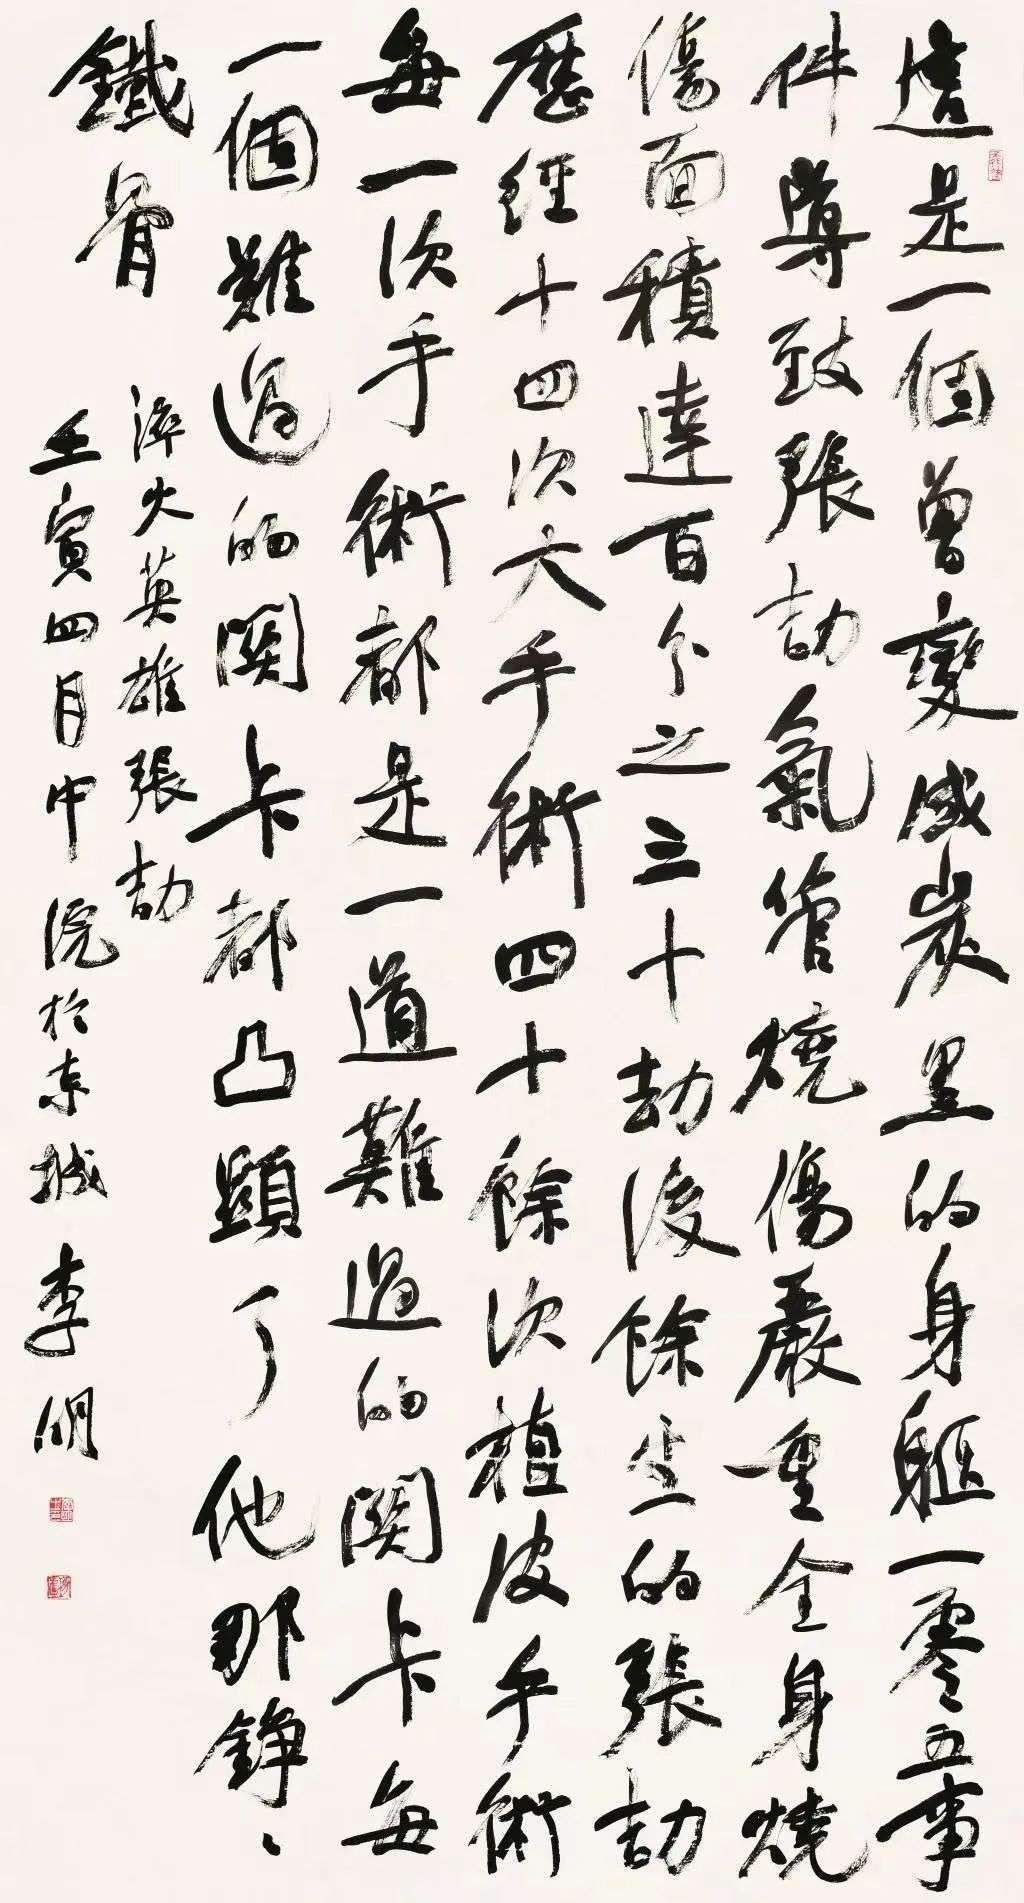 這是一個曾變成炭黑的身軀一零五事
件導致張劼氣管燒傷嚴重全身燒
傷面積達百分之三十劫後餘生的張劼
歷經十四次大手術四十餘次植皮手術
每一次手術都是一道難過的關卡每
一個難過的關卡都凸顯了他那錚〻
鐵骨
淬火英雄張劼
壬寅四月中浣於東城李明